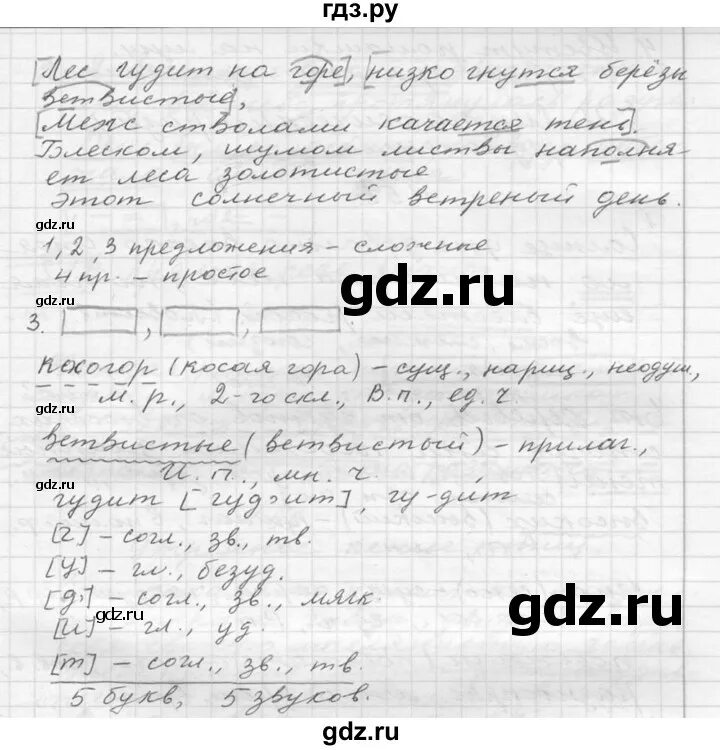 гдз.ру
[Лес гудит на горе], [низко гнутся берёзы
ветвистые],
[Меж стволами качается тень].
Блеском, шумом листвы наполня-
ет леса золотистые
этот солнечный ветреный день.
gdz.ru
1, 2, 3 предложения – сложные
4 пр. – простое
gdz.ru
gdz.ru
3. [ ], [ ], [ ].
косогор (косая гора) – сущ., нариц., неодуш.,
м. р., 2-го скл., В. п., ед. ч.
gdz.ru
ветвистые (ветвистый) – прилаг.,
И. п., мн. ч.
gdz.ru
гудит [гуд'ит], гу-ди́т
[г] – согл., зв., тв.
[у] – гл., безуд.
[д'] – согл., зв., мягк.
gdz.ru
gdz.ru
[и] – гл., уд.
[т] – согл., зв., тв.
5 букв, 5 звуков.
gdz.ru